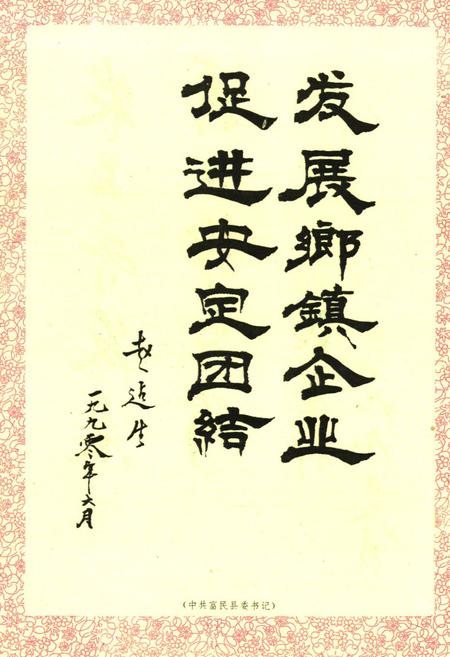 发展鄉鎮企业
促进安定团結
赵适生
一九九零年六月
(中共富民县委书记)